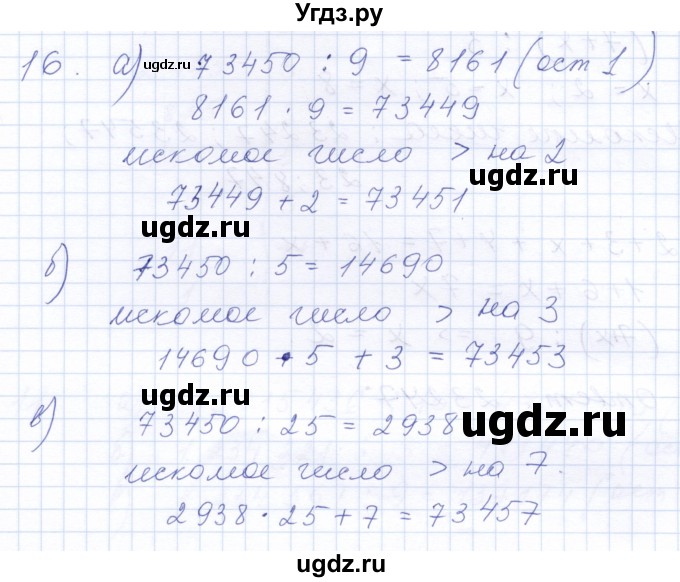 Угдз.ру
16. а) 73450 : 9 = 8161 (ост 1)
gdz.ru
8161 · 9 = 73449
искомое число > на 2
ugdz.ru
73449 + 2 = 73451
ugdz.ru
б) 73450 : 5 = 14690
искомое число > на 3
ugdz.ru
14690 · 5 + 3 = 73453
ugdz.ru
в) 73450 : 25 = 2938
ugdz.ru
искомое число > на 7.
ugdz.ru
2938 · 25 + 7 = 73457
ugdz.ru
ugdz.ru